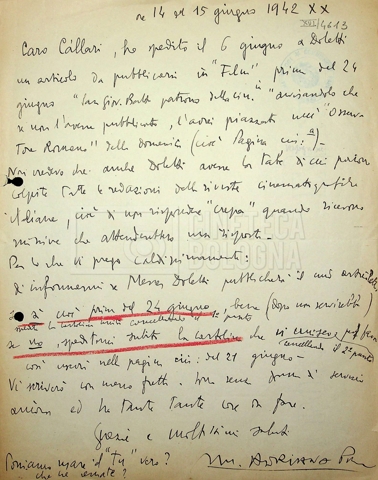 ore 14 del 15 giugno 1942 XX
XVI/4613
Caro Càllari, ho spedito il 6 giugno a Doletti
un articolo da pubblicarsi in "Film" prima del 24
giugno "San Giov. patrono del cin." avvisandolo che
se non l'avesse pubblicato, l'avrei piazzato nell' "Osserva
tore Romano" della domenica (cioè Pagina cin.)-
Non credevo che anche Doletti avesse la tabe di cui paiono
colpite tutte le redazioni delle riviste cinematografiche
italiane, cioè di non rispondere "crepa" quando ricevono
missive che attendono una risposta.-
Per lo che vi prego caldissimamente:
di informarvi se Doletti pubblicherà il mio articolo
se sì così prima del 24 giugno, bene (dopo non servirebbe)
se no, speditemi subito la cartolina che vi
così uscirà nella pagina cin. del 21 giugno-
Vi scriverò con meno fretta. Sono senza di servizio
ancora ed ho tante tante cose da fare.
Grazie e moltissimi saluti
Possiamo usare il "tu" vero?
che ne pensate?
M. ADRIANA
CINETECA
BOLOGNA